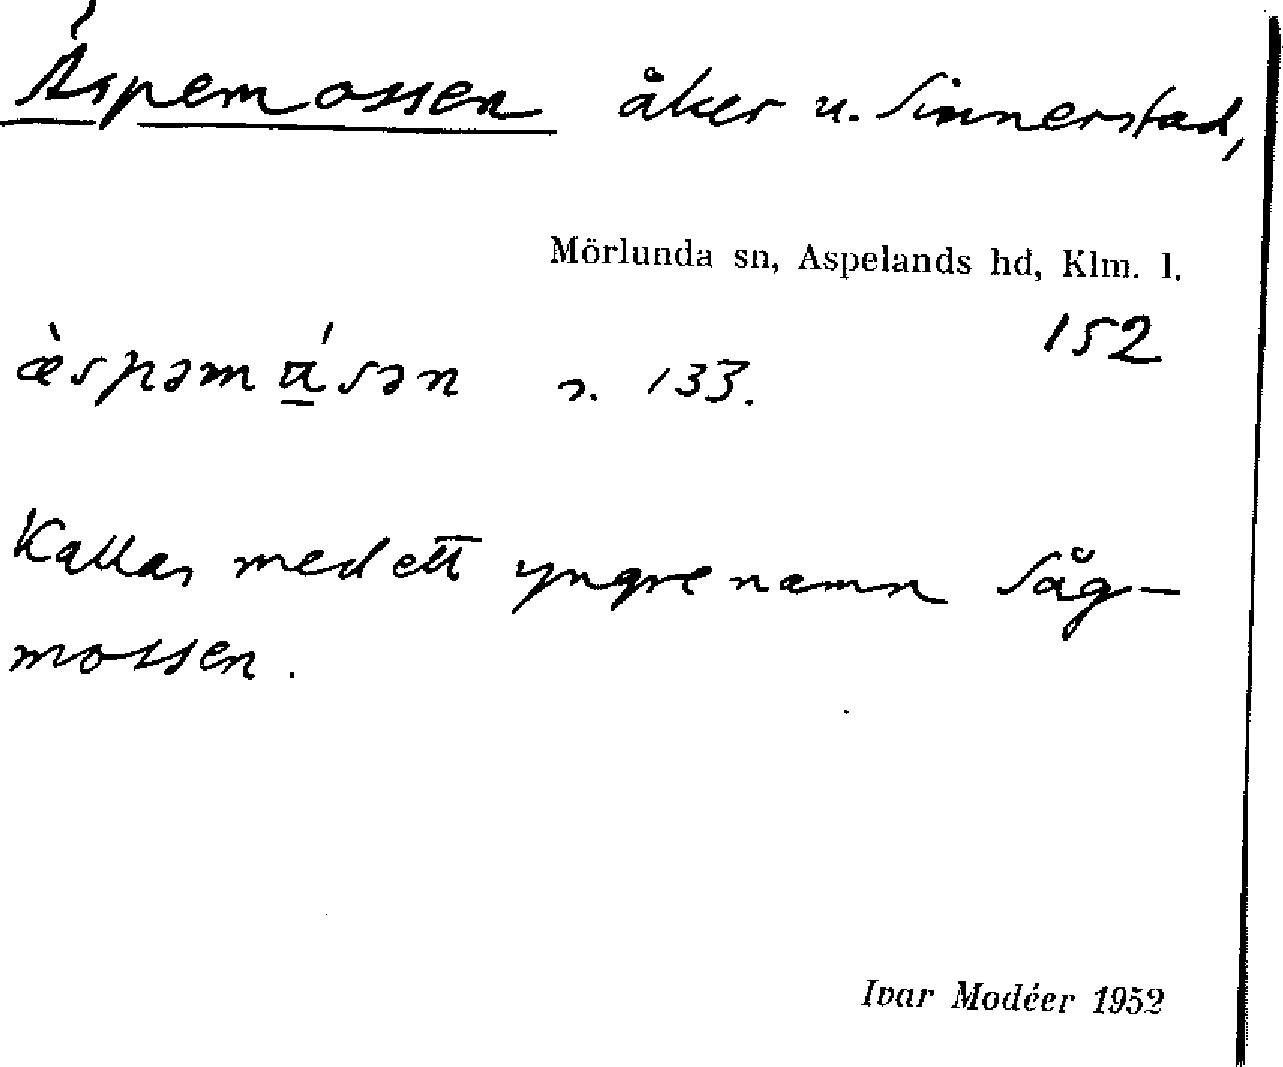 Äspemossen åker u. Sinnerstad,
Mörlunda sn, Aspelands hd, Klm. l.
152
s. 133.
Kallas med ett yngre namn Såg-
mossen.
Ivar Modéer 1952